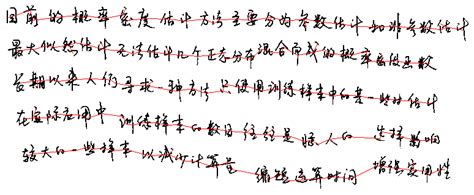 目前的概率密度估计方法主要分为参数估计和非参数估计
最大似然估计无法估计几个正态分布混合而成的概率密度函数
长期以来人们寻求一种方法只使用训练样本中的某一些时估计
在实际应用中训练样本的数目往往是惊人的选择影响
较大的一些样本以减少计算量缩短运算时间增强实用性